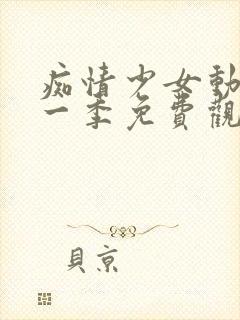 痴情少女動
一季免費觀
貝京